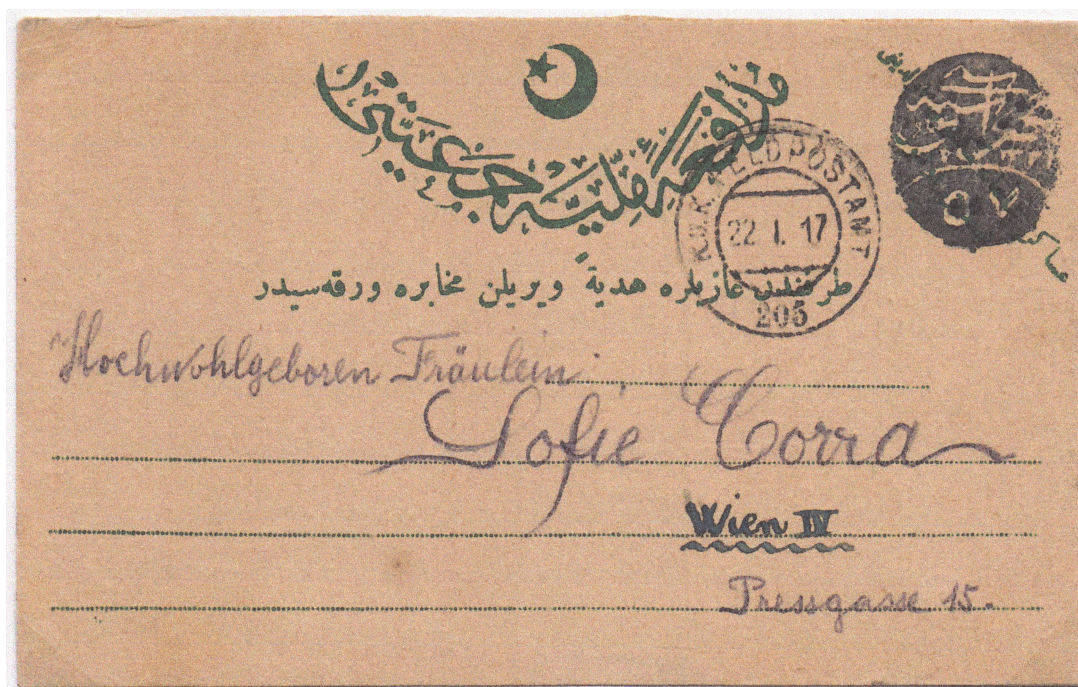 مدافعهٔ ملیه جمعیتی
K.U.K. FELDPOSTAMT
22 I. 17
205
طرفندن غازیلره هدیةً ویریلن مخابره ورقه‌سیدر
Hochwohlgeboren Fräulein
Sofie Corra
Wien IV
Pressgasse 15.